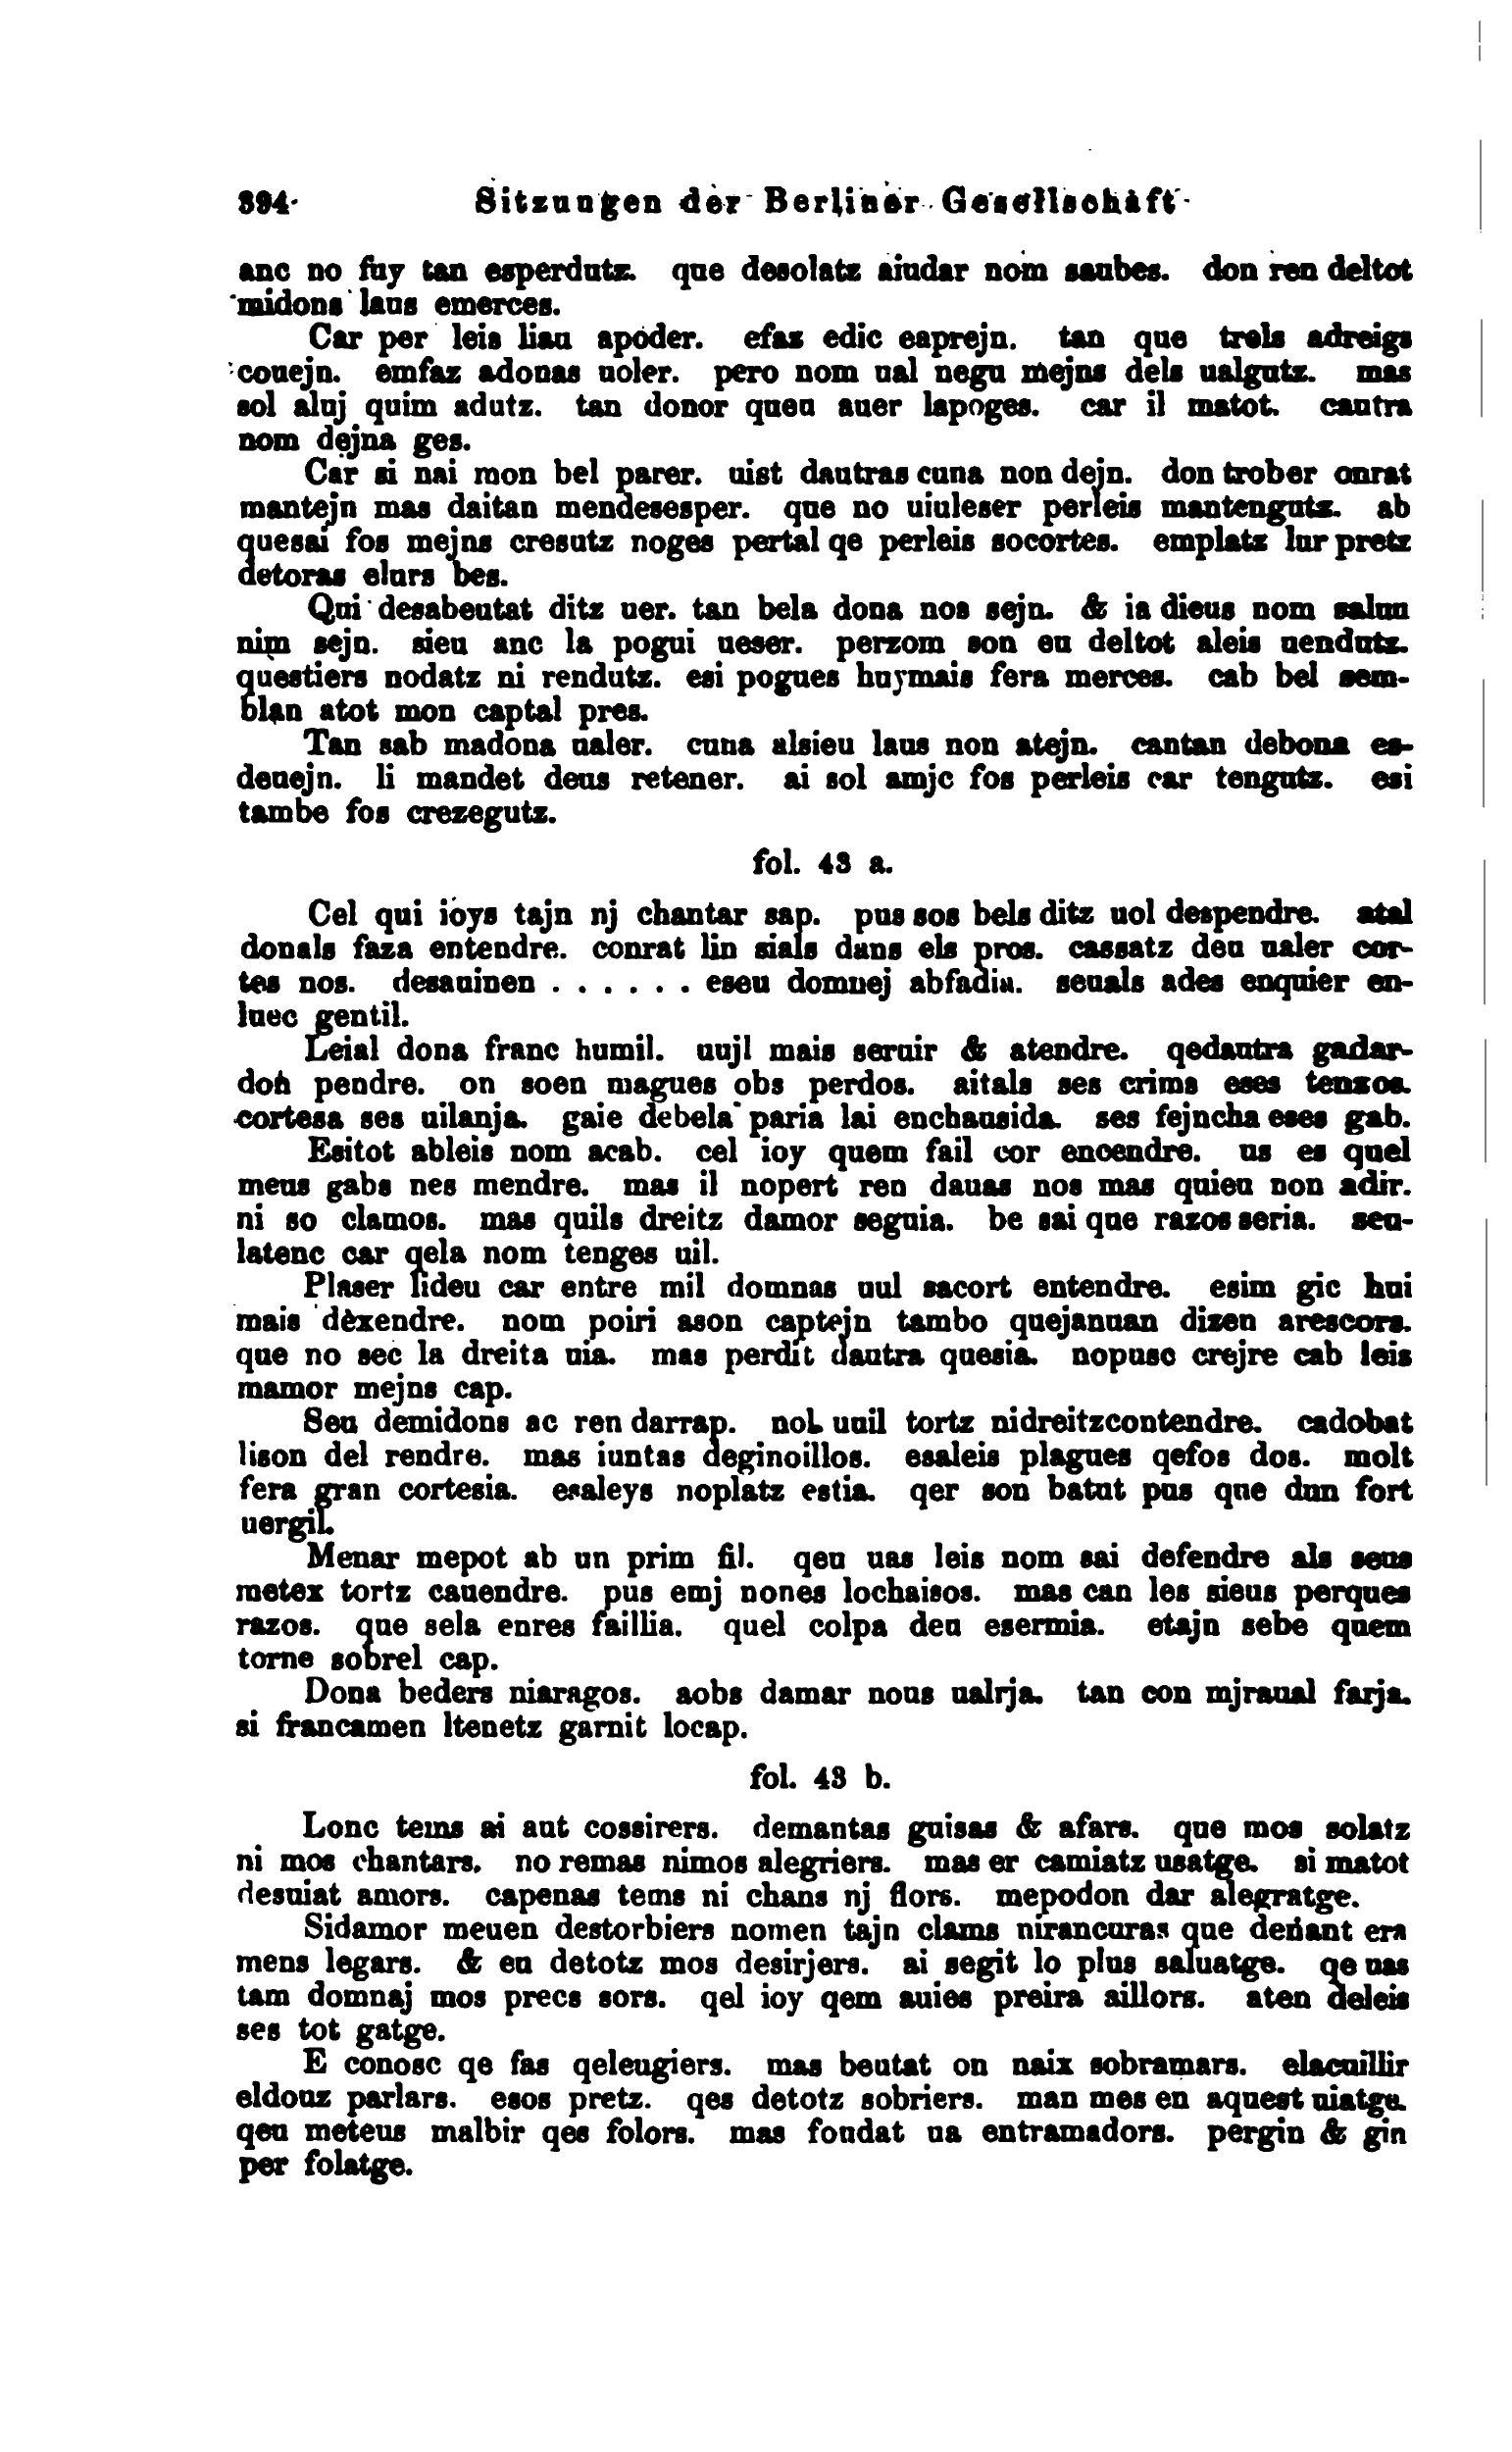 394 Sitzungen der Berliner Gesellschaft
anc no fuy tan esperdutz. que desolatz aiudar nom saubes. don ren deltot
midons laus emerces.
Car per leis liau apoder. efaz edic eaprejn. tan que trels adreigs
couejn. emfaz adonas uoler. pero nom ual negu mejns dels ualgutz. mas
sol aluj quim adutz. tan donor queu auer lapoges. car il matot. cautra
nom dejna ges.
Car si nai mon bel parer. uist dautras cuna non dejn. don trober onrat
mantejn mas daitan mendesesper. que no uiuleser perleis mantengutz. ab
quesai fos mejns cresutz noges pertal qe perleis socortes. emplatz lur pretz
detoras elurs bes.
Qui desabeutat ditz uer. tan bela dona nos sejn. & ia dieus nom salun
nim sejn. sieu anc la pogui ueser. perzom son eu deltot aleis uendutz.
questiers nodatz ni rendutz. esi pogues huymais fera merces. cab bel sem-
blan atot mon captal pres.
Tan sab madona ualer. cuna alsieu laus non atejn. cantan debona es-
deuejn. li mandet deus retener. ai sol amjc fos perleis car tengutz. esi
tambe fos crezegutz.
fol. 43 a.
Cel qui ioys tajn nj chantar sap. pus sos bels ditz uol despendre. atal
donals faza entendre. conrat lin sials dans els pros. cassatz deu ualer cor-
tes nos. desauinen . . . . . . eseu domnej abfadia. seuals ades enquier en-
luec gentil.
Leial dona franc humil. uujl mais seruir & atendre. qedautra gadar-
don pendre. on soen magues obs perdos. aitals ses crims eses tenzos.
cortesa ses uilanja. gaie debela paria lai enchausida. ses fejncha eses gab.
Esitot ableis nom acab. cel ioy quem fail cor encendre. us es quel
meus gabs nes mendre. mas il nopert ren dauas nos mas quieu non adir.
ni so clamos. mas quils dreitz damor seguia. be sai que razos seria. seu-
latenc car qela nom tenges uil.
Plaser lideu car entre mil domnas uul sacort entendre. esim gic hui
mais dexendre. nom poiri ason captejn tambo quejanuan dizen arescors.
que no sec la dreita uia. mas perdit dautra quesia. nopusc crejre cab leis
mamor mejns cap.
Seu demidons ac ren darrap. nol uuil tortz nidreitzcontendre. cadobat
lison del rendre. mas iuntas deginoillos. esaleis plagues qefos dos. molt
fera gran cortesia. esaleys noplatz estia. qer son batut pus que dun fort
uergil.
Menar mepot ab un prim fil. qeu uas leis nom sai defendre als seus
metex tortz cauendre. pus emj nones lochaisos. mas can les sieus perques
razos. que sela enres faillia. quel colpa deu esermia. etajn sebe quem
torne sobrel cap.
Dona beders niaragos. aobs damar nous ualrja. tan con mjraual farja.
si francamen ltenetz garnit locap.
fol. 43 b.
Lonc tems ai aut cossirers. demantas guisas & afars. que mos solatz
ni mos chantars. no remas nimos alegriers. mas er camiatz usatge. si matot
desuiat amors. capenas tems ni chans nj flors. mepodon dar alegratge.
Sidamor meuen destorbiers nomen tajn clams nirancuras que denant era
mens legars. & eu detotz mos desirjers. ai segit lo plus saluatge. qe uas
tam domnaj mos precs sors. qel ioy qem auies preira aillors. aten deleis
ses tot gatge.
E conosc qe fas qeleugiers. mas beutat on naix sobramars. elacuillir
eldouz parlars. esos pretz. qes detotz sobriers. man mes en aquest uiatge.
qeu meteus malbir qes folors. mas foudat ua entramadors. pergin & gin
per folatge.